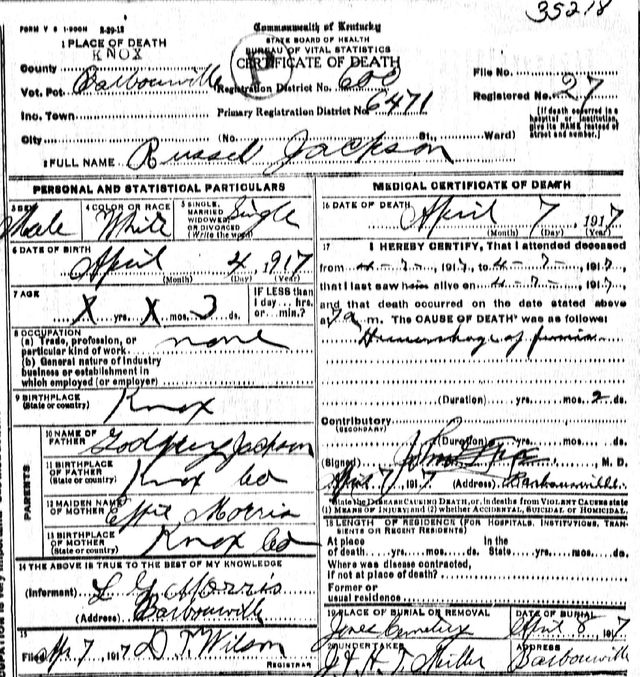 35218
FORM V S 1-500M 2-29-12
Commonwealth of Kentucky
STATE BOARD OF HEALTH
BUREAU OF VITAL STATISTICS
CERTIFICATE OF DEATH
1 PLACE OF DEATH
County KNOX
Vot. Pct Barbourville
Registration District No. 600
File No.
Inc. Town
Primary Registration District No. 6471
Registered No. 27
City (No. St., Ward)
[If death occurred in a hospital or institution, give its NAME instead of street and number.]
2 FULL NAME Russel Jackson
PERSONAL AND STATISTICAL PARTICULARS
3 SEX Male
4 COLOR OR RACE White
5 SINGLE, MARRIED WIDOWED OR DIVORCED (Write the word) Single
6 DATE OF BIRTH
April 4, 1917
(Month) (Day) (Year)
7 AGE
X yrs. X mos. 3 ds.
IF LESS than 1 day... hrs. or min.?
8 OCCUPATION
(a) Trade, profession, or particular kind of work none
(b) General nature of industry business or establishment in which employed (or employer)
9 BIRTHPLACE
(State or country) Knox
PARENTS
10 NAME OF FATHER Godfrey Jackson
11 BIRTHPLACE OF FATHER
(State or country) Knox Co
12 MAIDEN NAME OF MOTHER Effie Morris
13 BIRTHPLACE OF MOTHER
(State or country) Knox Co
14 THE ABOVE IS TRUE TO THE BEST OF MY KNOWLEDGE
(Informant) L G Morris
(Address) Barbourville
15
Filed Ap. 7 1917 D. T. Wilson
REGISTRAR
MEDICAL CERTIFICATE OF DEATH
16 DATE OF DEATH
April 7, 1917
(Month) (Day) (Year)
17 I HEREBY CERTIFY, That I attended deceased
from 4-7-, 1917, to 4-7-, 1917,
that I last saw him alive on 4-7-, 1917,
and that death occurred on the date stated above
at 7 a m. The CAUSE OF DEATH was as follows:
Hemorrhage of
(Duration) yrs. mos. 2 ds.
Contributory
(SECONDARY)
(Duration) yrs. mos. ds.
(Signed) M. D.
April 7, 1917 (Address) Barbourville
State the DISEASE CAUSING DEATH, or, in deaths from VIOLENT CAUSES state
(1) MEANS OF INJURY; and (2) whether ACCIDENTAL, SUICIDAL OR HOMICIDAL.
18 LENGTH OF RESIDENCE (FOR HOSPITALS, INSTITUTIONS, TRANSIENTS OR RECENT RESIDENTS)
At place of death yrs. mos. ds. In the State yrs. mos. ds.
Where was disease contracted,
if not at place of death?
Former or
usual residence
19 PLACE OF BURIAL OR REMOVAL
Jones Cemetery
DATE OF BURIAL
April 8 1917
20 UNDERTAKER
J & H T Miller
ADDRESS
Barbourville